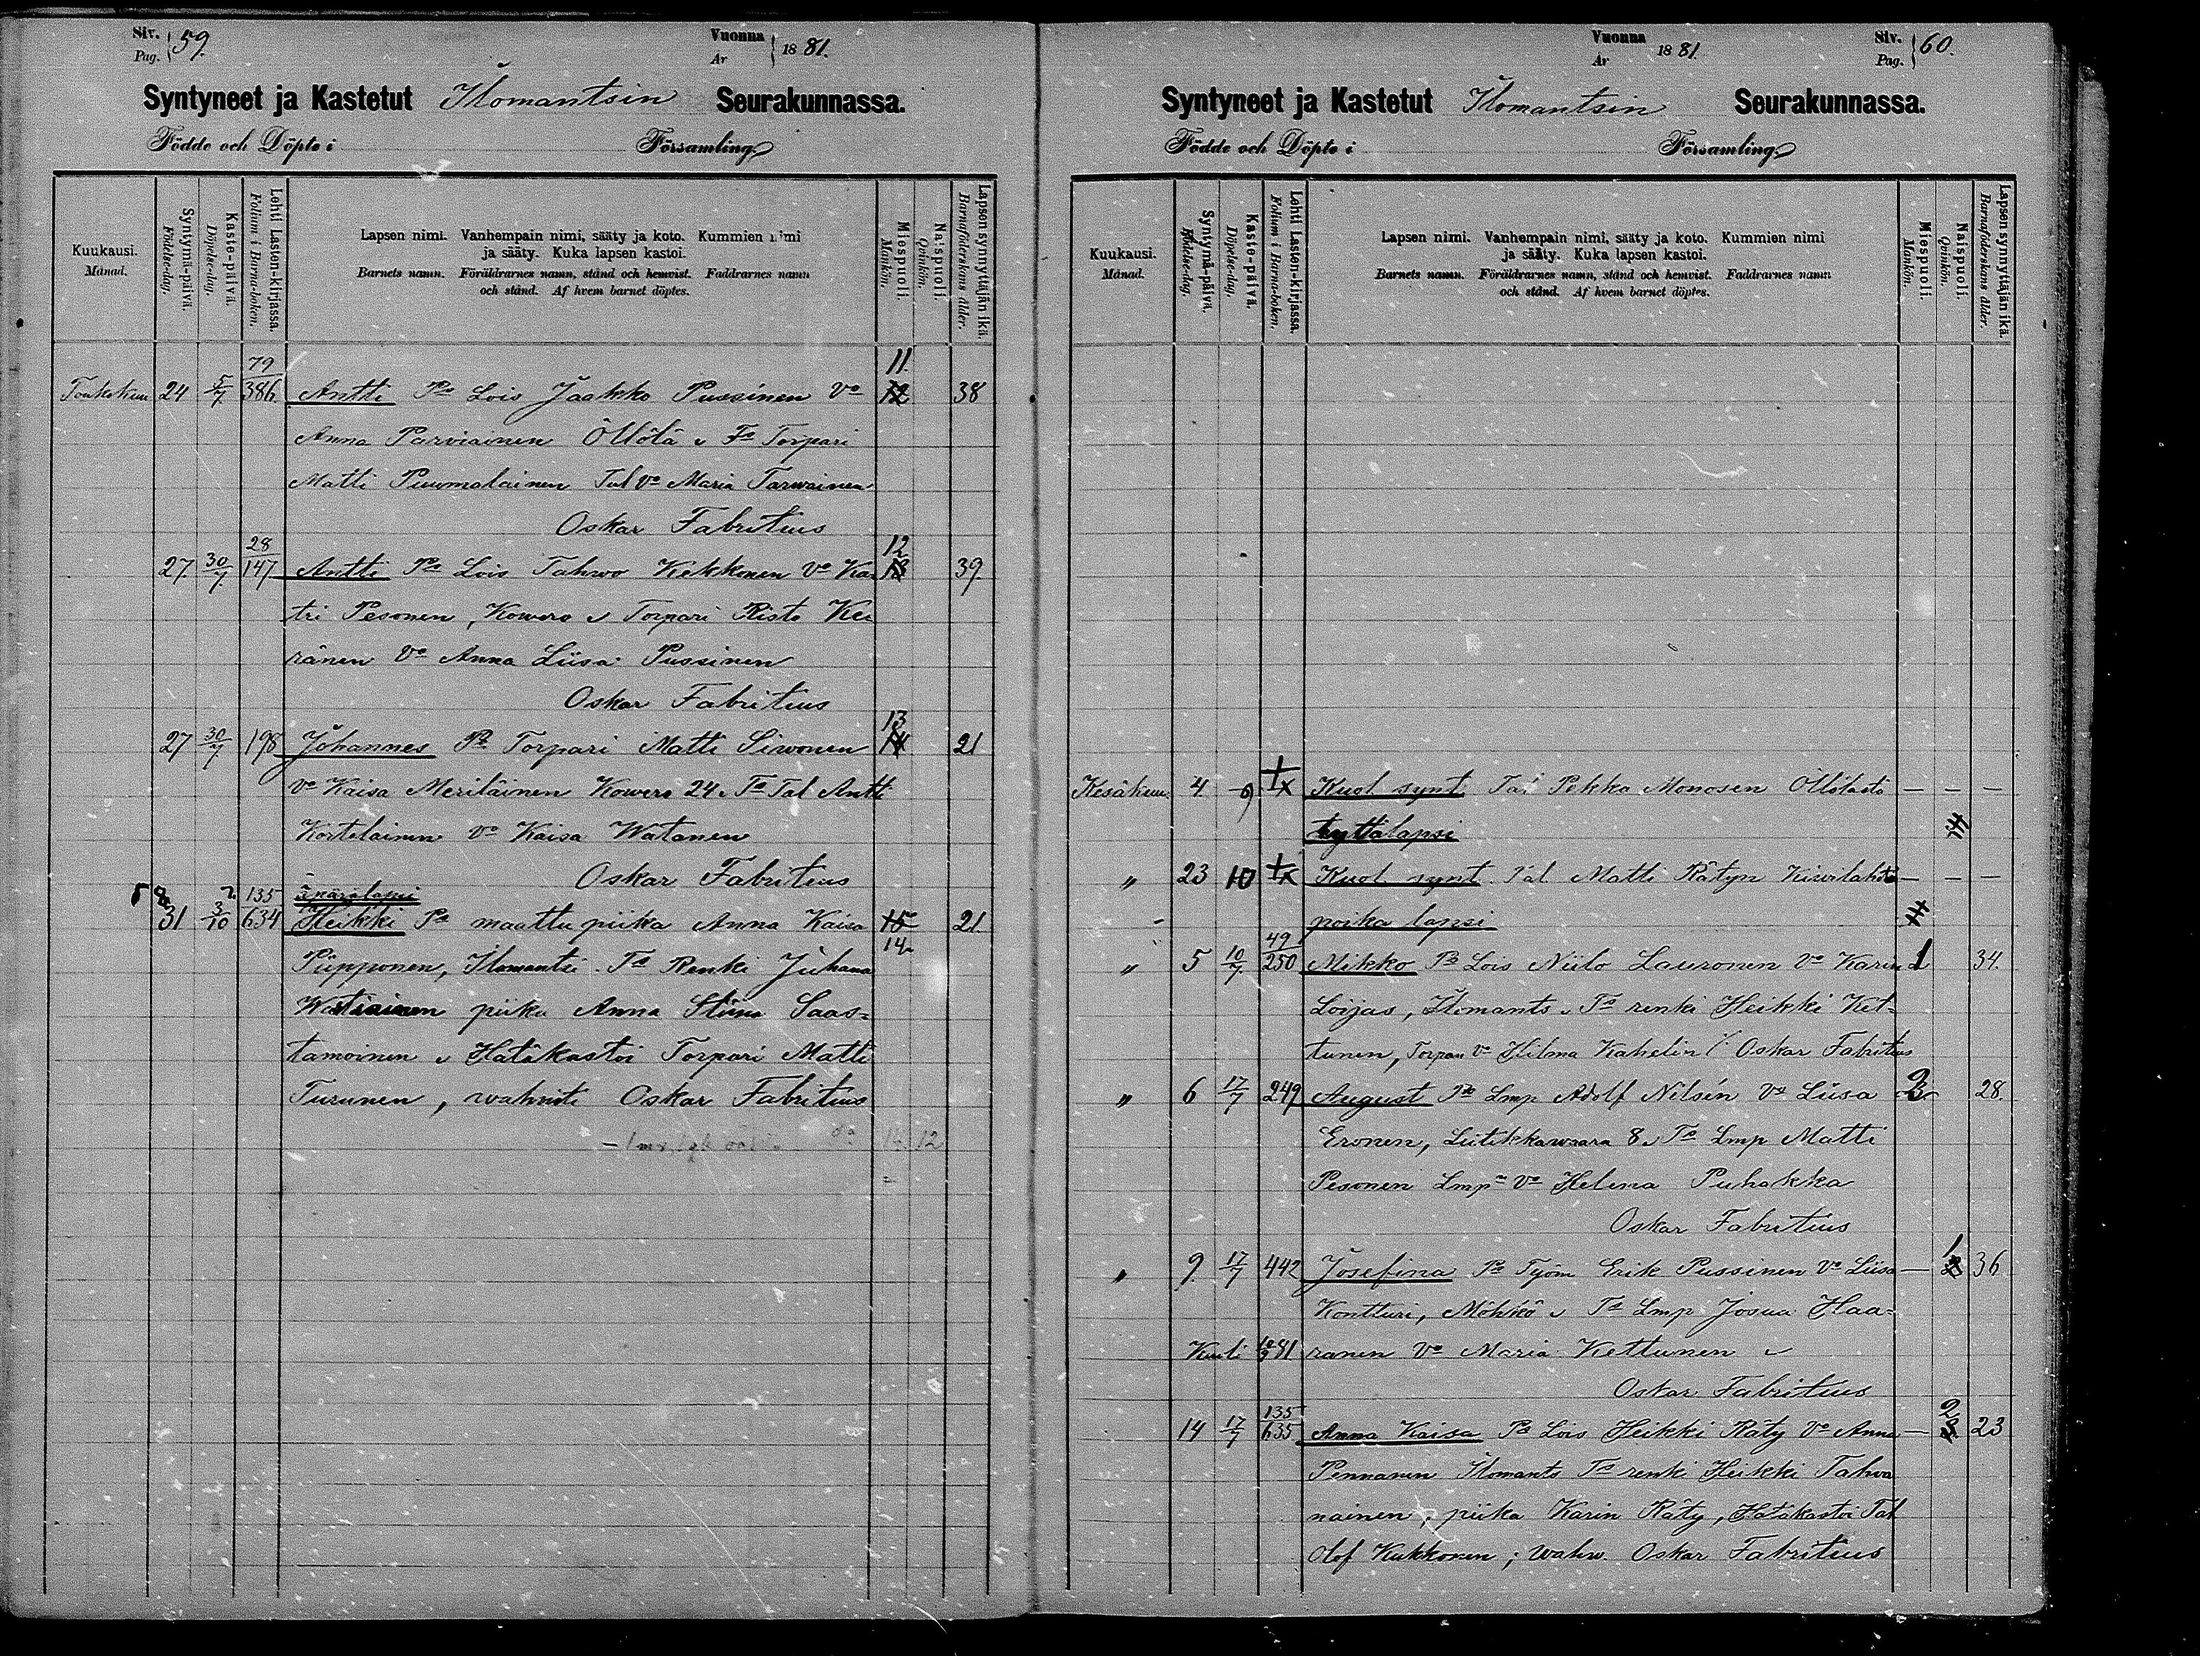 Siv. Pag. 59. Vuonna År 1881.
Syntyneet ja Kastetut Ilomantsin Seurakunnassa.
Födde och Döpte i Församling
Kuukausi. Månad.
Syntymä-päivä. Födelse-dag.
Kaste-päivä. Döpelse-dag.
Lehti Lasten-kirjassa. Folium i Barna-boken.
Lapsen nimi. Vanhempain nimi, sääty ja koto. Kummien nimi
ja sääty. Kuka lapsen kastoi.
Barnets namn. Föräldrarnes namn, stånd och hemvist. Faddrarnes namn
och stånd. Af hvem barnet döptes.
Miespuoli. Mankön.
Naispuoli. Qvinkön.
Lapsensynnyttäjän ikä. Barnaföderskans ålder.
79 11.
Toukokuu 24 5/7 386 Antti Ps Lois Jaakko Pussinen Vo 12 38
Anna Parviainen Öllölä Ts Torpari
Matti Puumalainen Tal Vo Maria Tarwainen
Oskar Fabritius
28 12
27. 30/7 147 Antti Ps Lois Tahwo Kekkonen Vo Ka 13 39.
tri Pesonen, Kowero Torpari Risto Ke
ränen Vo Anna Liisa Pussinen
Oskar Fabritius
13
27 30/7 198 Johannes Ps Torpari Matti Siwonen 14 21
Vo Kaisa Meriläinen Kowero 24. Ts Tal Antti
Kortelainen Vo Kaisa Watanen
Oskar Fabritius
135 äpärälapsi
31 3/10 634 Heikki Ps maattu piika Anna Kaisa 15 21.
14
Piipponen, Ilomantsi. Ts Renki Juhana
Watiainen piika Anna Stiina Saas=
tamoinen Hätäkastoi Torpari Matti
Turunen, wahvisti Oskar Fabritius
14 12
Vuonna År 1881. Siv. Pag. 60.
Syntyneet ja Kastetut Ilomantsin Seurakunnassa.
Födde och Döpte i Församling
Kuukausi. Månad.
Syntymä-päivä. Födelse-dag.
Kaste-päivä. Döpelse-dag.
Lehti Lasten-kirjassa. Folium i Barna-boken.
Lapsen nimi. Vanhempain nimi, sääty ja koto. Kummien nimi
ja sääty. Kuka lapsen kastoi.
Barnets namn. Föräldrarnes namn, stånd och hemvist. Faddrarnes namn
och stånd. Af hvem barnet döptes.
Miespuoli. Mankön.
Naispuoli. Qvinkön.
Lapsensynnyttäjän ikä. Barnaföderskans ålder.
Kesäkuu 4 Kuol synt Tal Pekka Monosen Öllölästä — — —
tyttölapsi
„ 23 10 Kuol. synt. Tal Matti Rätyn Kiwilahti — — —
poika lapsi
49
„ 5 10/7 250 Mikko Ps Lois Niilo Lauronen Vo Karin 1 34.
Loijas, Ilomants Ts renki Heikki Ket=
tunen, Torpan Vo Hilma Kahelin Oskar Fabritius
„ 6 17/7 249 August Ps Lmp Adolf Nilsén Vo Liisa 2 28.
Eronen, Liitikkawaara 8 Ts Lmp Matti
Pesonen Lmpn Vo Helena Puhakka
Oskar Fabritius
1
„ 9. 17/7 442 Josefina Ps Työm Erik Pussinen Vo Liisa — 36
Kontturi, Möhkö Ts Lmp Josua Haa=
Kuoli 81 ranen Vo Maria Kettunen
Oskar Fabritius
135 2
14 17/7 635 Anna Kaisa Ps Lois Heikki Räty Vo Anna — 23
Pennanen Ilomants Ts renki Heikki Tahva
nainen, piika Karin Räty, Hätäkastoi Tal
Olof Kukkonen; wahw. Oskar Fabritius